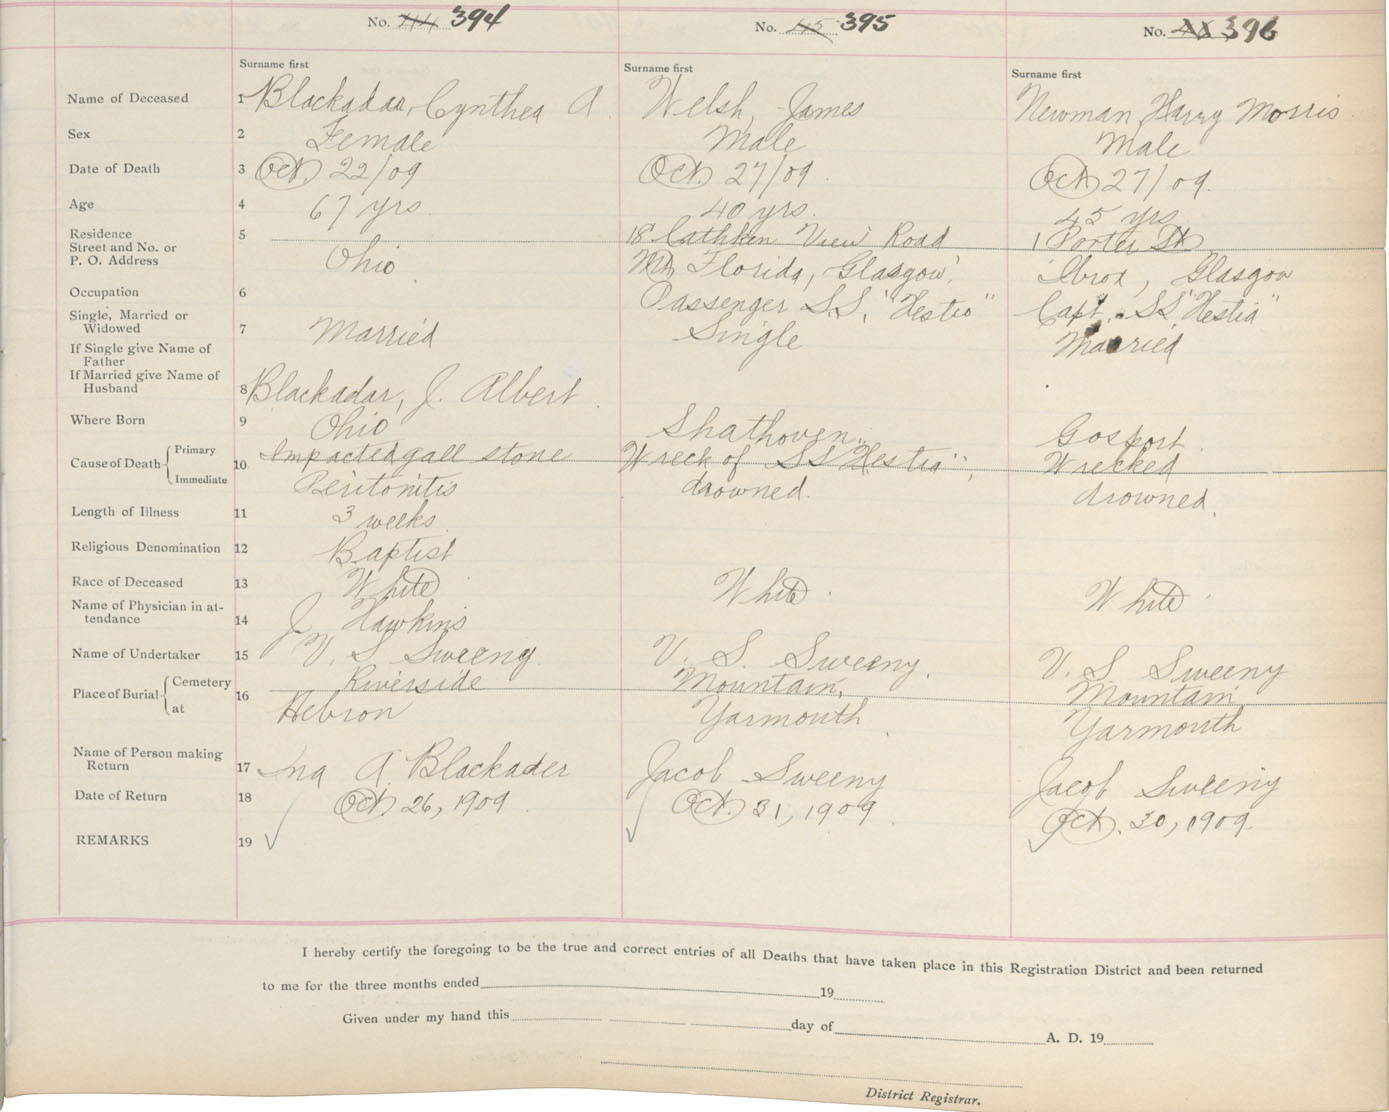 No. 394 No. 395 No. 396
Surname first Surname first Surname first
Name of Deceased 1 Blackadar, Cynthea A Welsh, James Newman, Harry Morris
Sex 2 Female Male Male
Date of Death 3 Oct. 22/09 Oct. 27/09. Oct. 27/09.
Age 4 67 yrs. 40 yrs. 45 yrs
Residence 5 18 Cathken View Road 1 Porter St
Street and No. or
P. O. Address Ohio Mt. Florida, Glasgow, Ibrox, Glasgow
Occupation 6 Passenger S.S. "Hestia" Capt. SS "Hestia"
Single, Married or
Widowed 7 Married Single Married
If Single give Name of
Father
If Married give Name of
Husband 8 Blackadar, J. Albert
Where Born 9 Ohio Shathoven. Gosport
Cause of Death Primary 10 Impacted gall stone Wreck of SS "Hestia", Wrecked
Immediate Peritonitis drowned. drowned.
Length of Illness 11 3 weeks
Religious Denomination 12 Baptist
Race of Deceased 13 White White White
Name of Physician in at-
tendance 14 J. Hawkins
Name of Undertaker 15 V. S. Sweeny V. S. Sweeny. V. S. Sweeny
Place of Burial Cemetery 16 Riverside Mountain, Mountain
at Hebron Yarmouth Yarmouth
Name of Person making
Return 17 Ina A. Blackader Jacob Sweeny Jacob Sweeny
Date of Return 18 Oct. 26, 1909 Oct. 31, 1909 Oct. 30, 1909
REMARKS 19
I hereby certify the foregoing to be the true and correct entries of all Deaths that have taken place in this Registration District and been returned
to me for the three months ended 19
Given under my hand this day of A. D. 19
District Registrar.